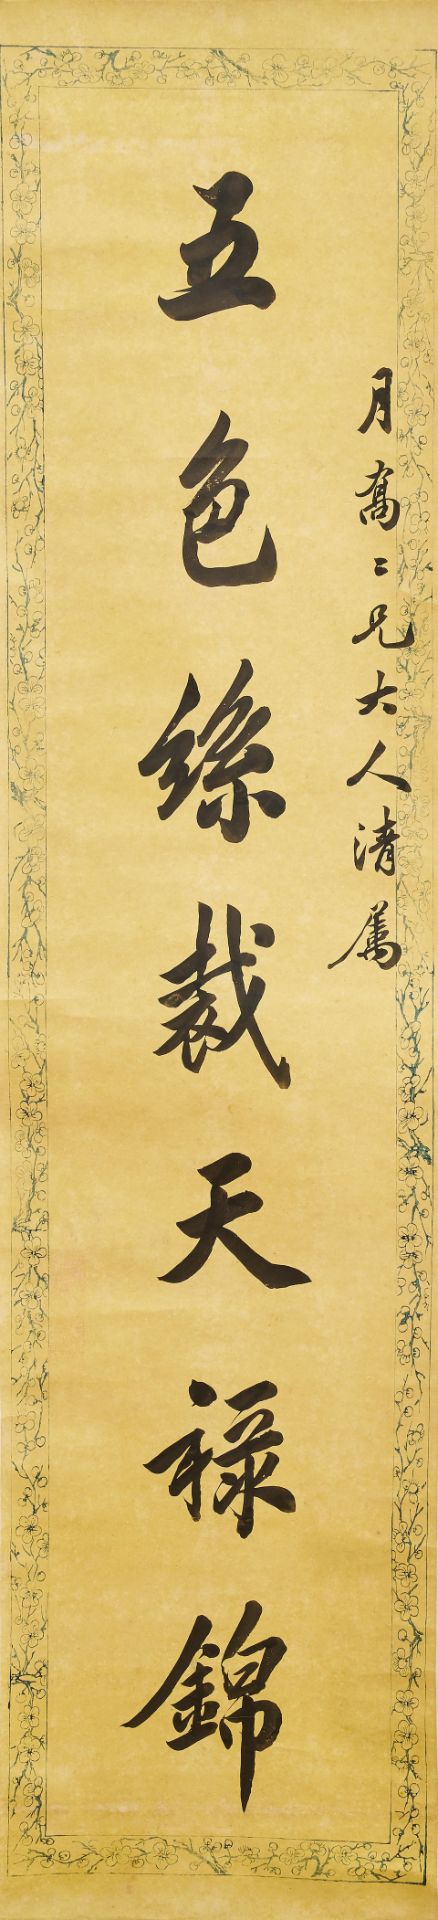 月喬二兄大人清属
五色絲裁天祿錦